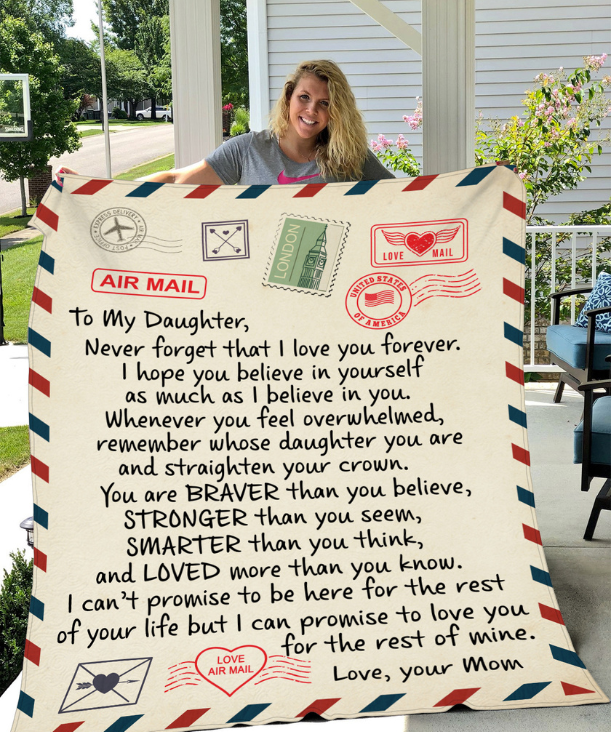 EXPRESS DELIVERY
LONDON
LOVE MAIL
AIR MAIL
UNITED STATES
OF AMERICA
To My Daughter,
Never forget that I love you forever.
I hope you believe in yourself
as much as I believe in you.
Whenever you feel overwhelmed,
remember whose daughter you are
and straighten your crown.
You are BRAVER than you believe,
STRONGER than you seem,
SMARTER than you think,
and LOVED more than you know.
I can't promise to be here for the rest
of your life but I can promise to love you
for the rest of mine.
Love, your Mom
LOVE
AIR MAIL